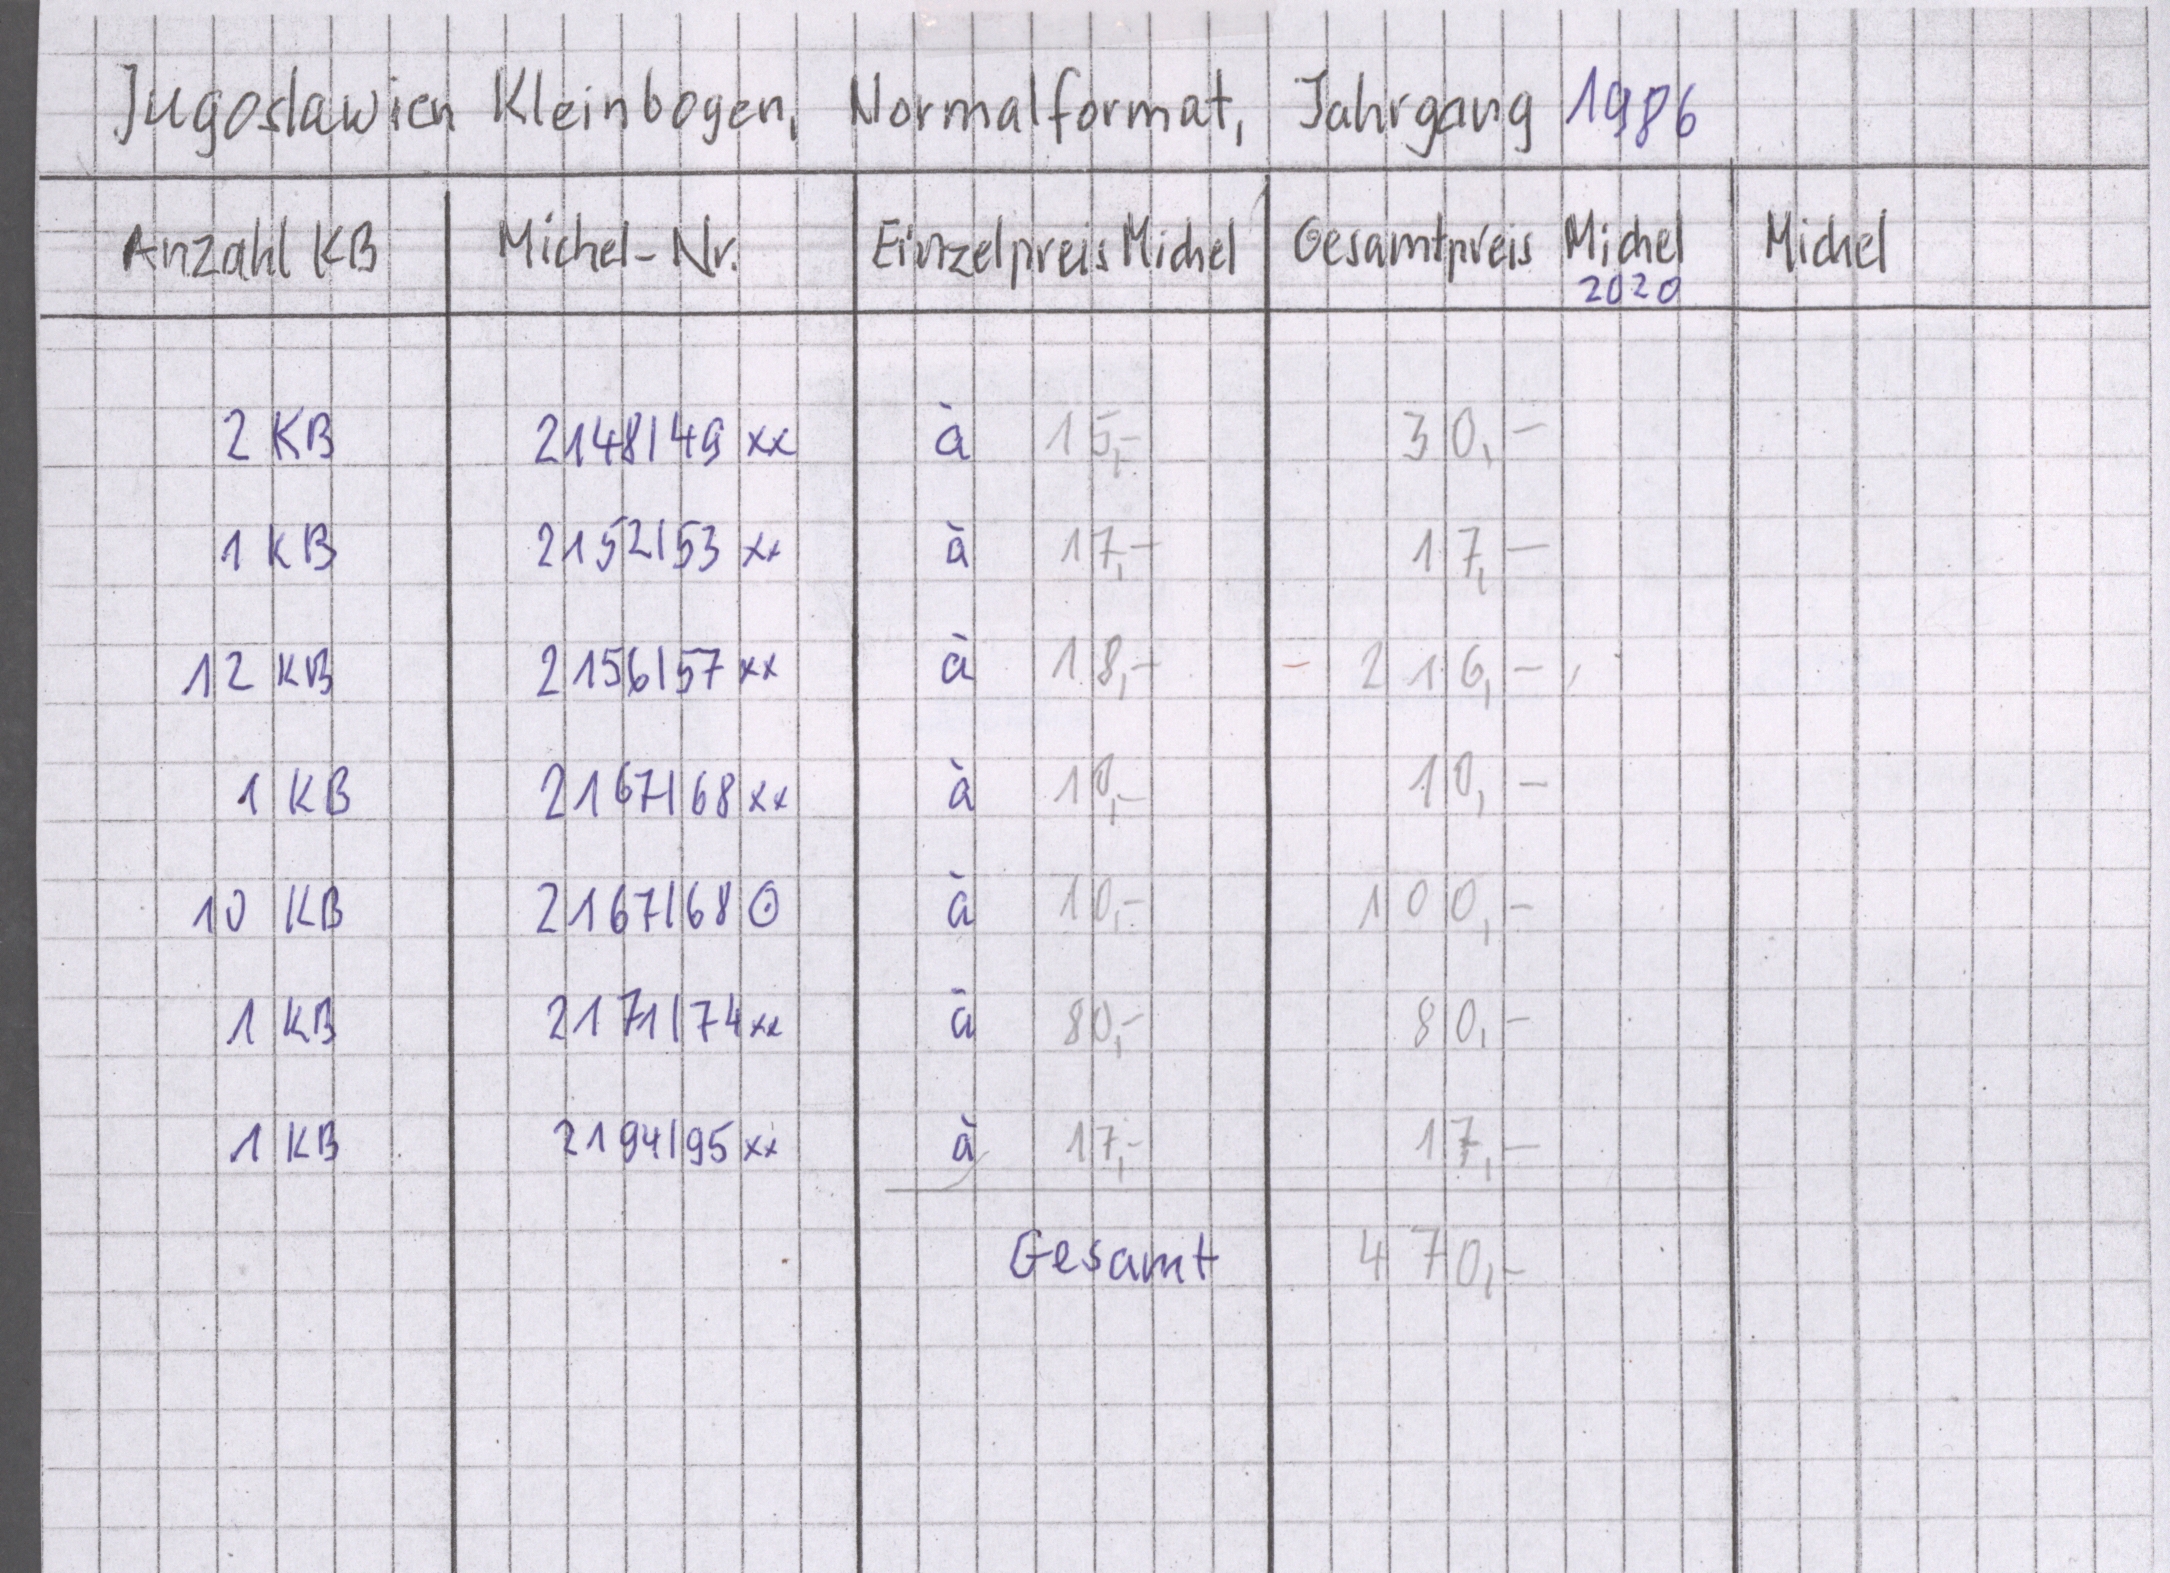 Jugoslawien Kleinbogen, Normalformat, Jahrgang 1986
Anzahl KB Michel-Nr. Einzelpreis Michel Gesamtpreis Michel Michel
2020
2 KB 2148/49 xx à 15,- 30,-
1 KB 2152/53 xx à 17,- 17,-
12 KB 2156/57 xx à 18,- 216,-
1 KB 2167/68 xx à 10,- 10,-
10 KB 2167/68 ⊙ à 10,- 100,-
1 KB 2171/74 xx à 80,- 80,-
1 KB 2194/95 xx à 17,- 17,-
Gesamt 470,-